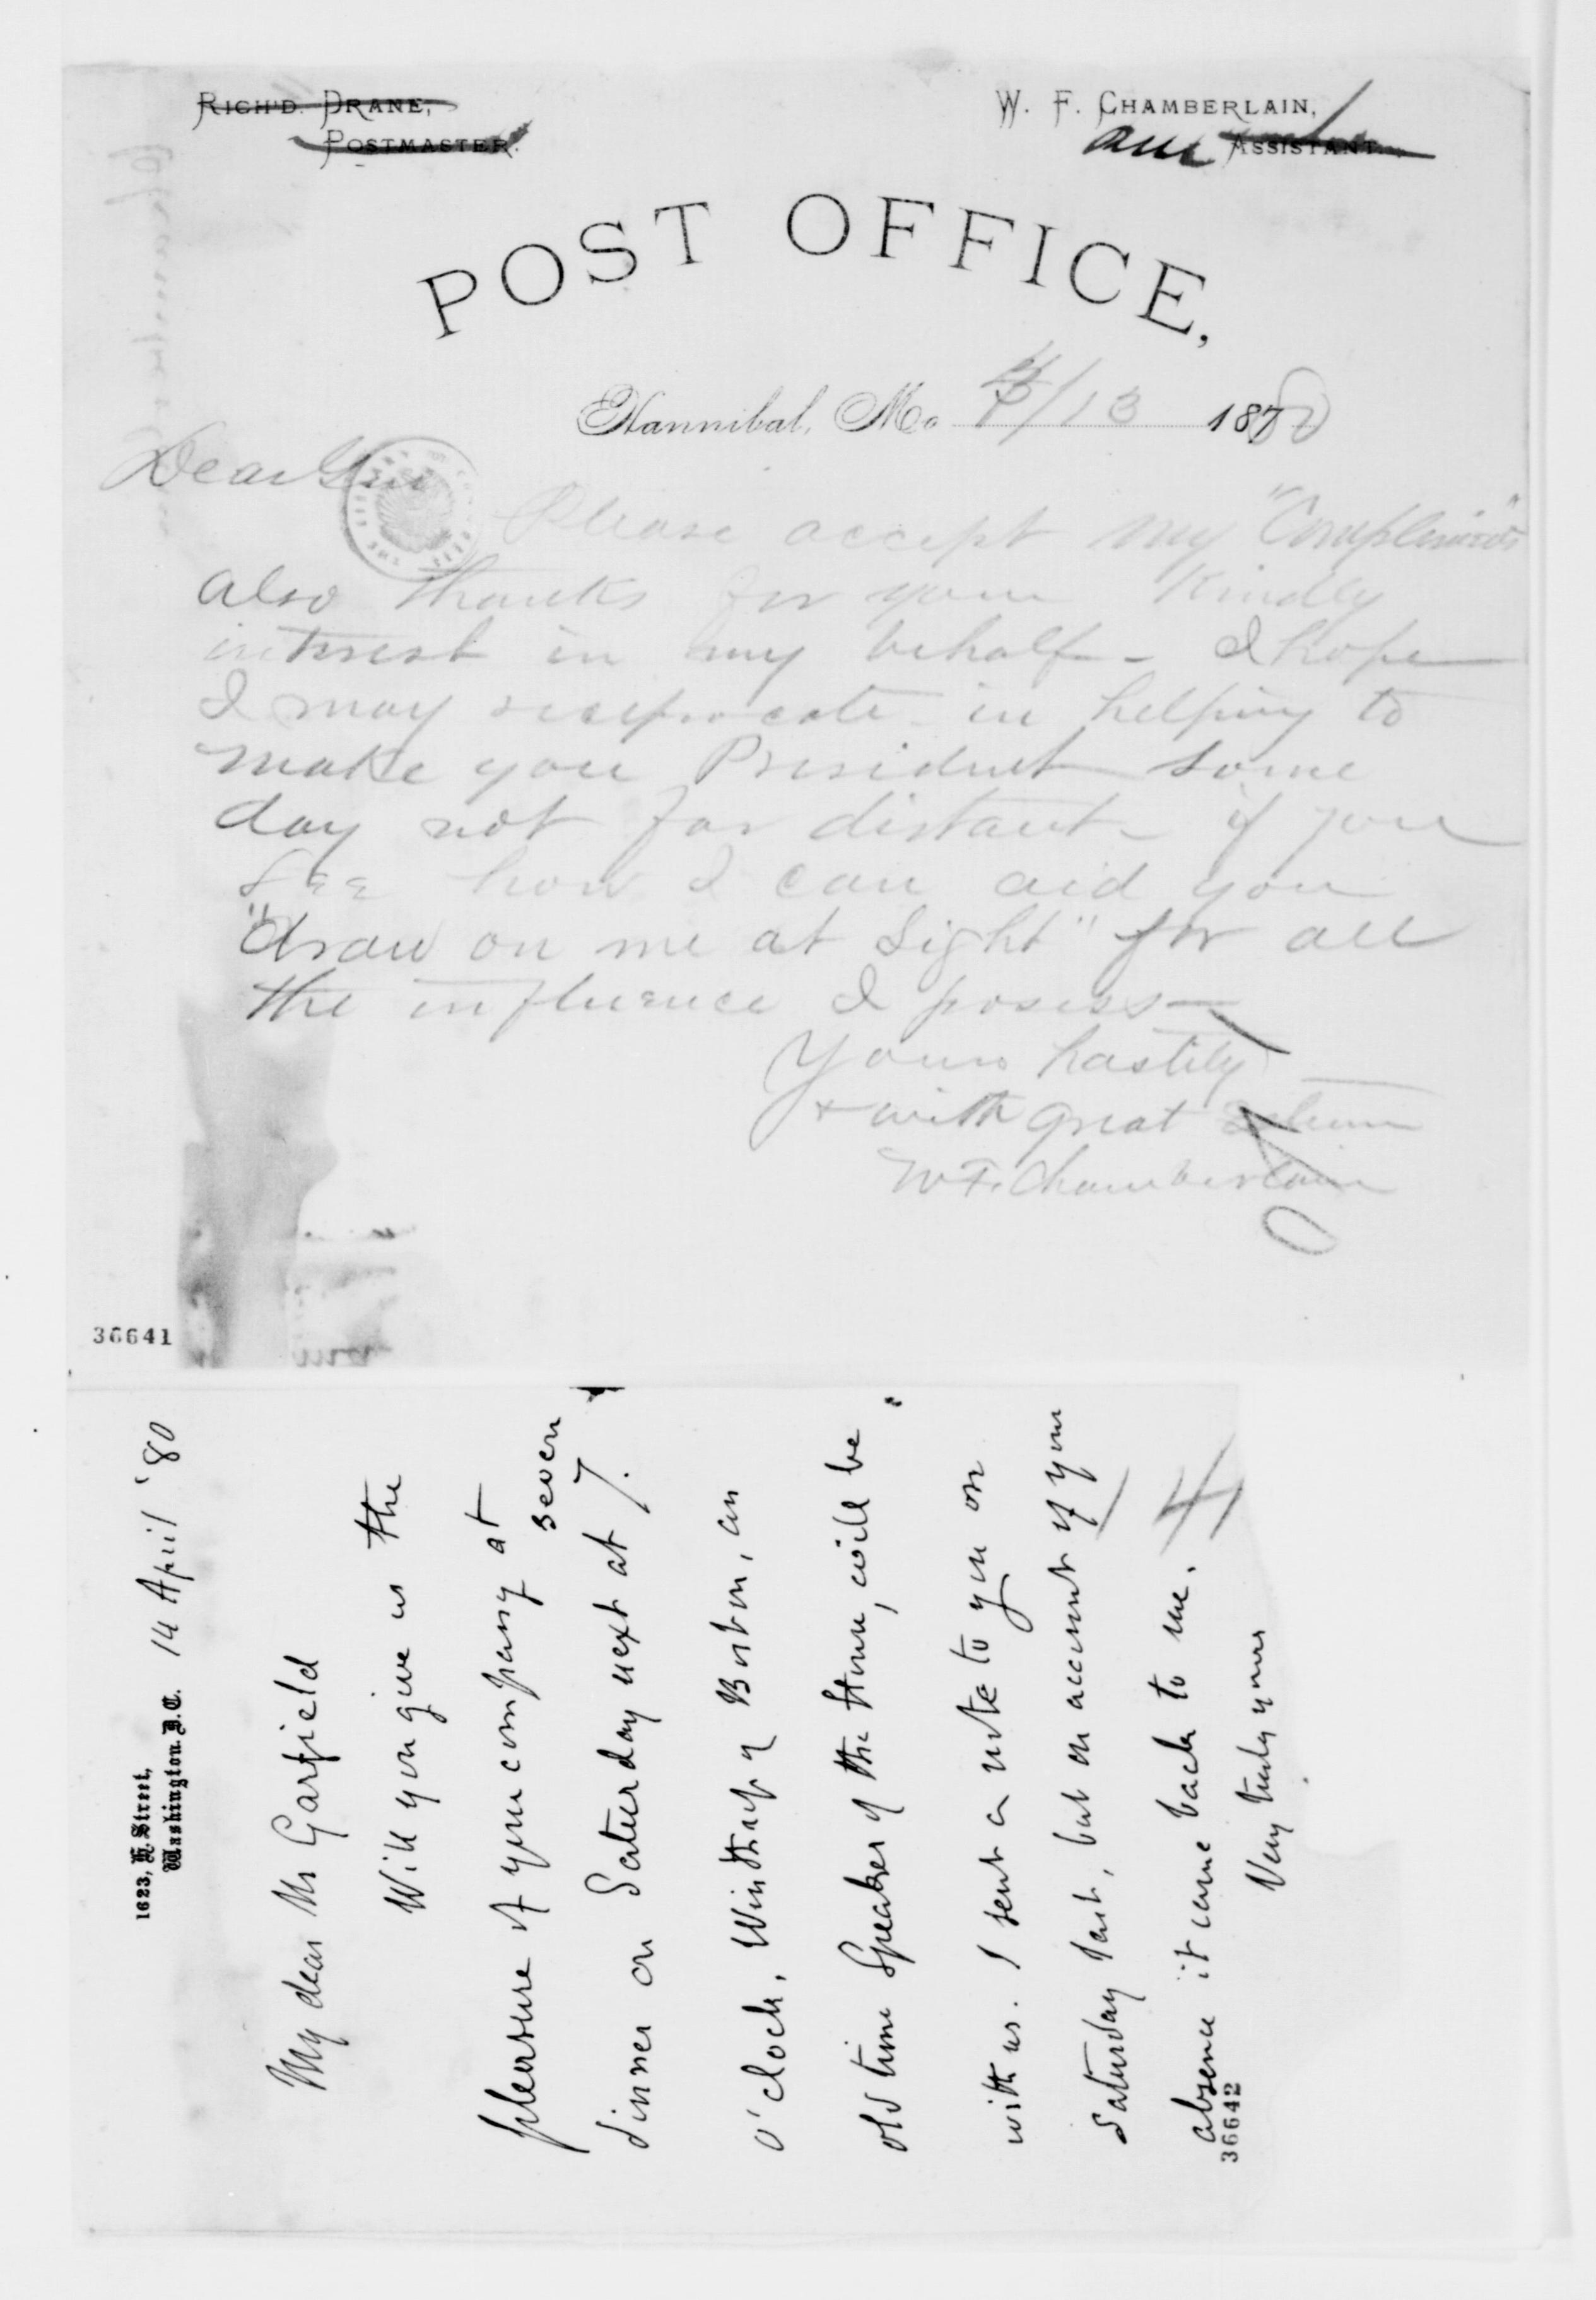 RICH'D. DRANE,
POSTMASTER.
W. F. CHAMBERLAIN,
ASSISTANT.
POST OFFICE,
Hannibal, Mo 4/13 1880
Dear Gen
Please accept my "Compliments"
also thanks for your kindly
interest in my behalf - I hope
I may reciprocate in helping to
make you President some
day not far distant - if you
see how I can aid you
"draw on me at sight" for all
the influence I posess -
Yours hastily
+ with great Esteem
W F. Chamberlain
36641
1623, H Street,
Washington. D.C. 14 April '80
My dear Mr Garfield
Will you give us the
pleasure of your company at
seven
dinner on Saturday next at 7.
o'clock. Winthrop of Boston, an
old time Speaker of the House, will be
with us. I sent a note to you on
Saturday last, but on account of your
absence it came back to me.
Very truly yours
36642